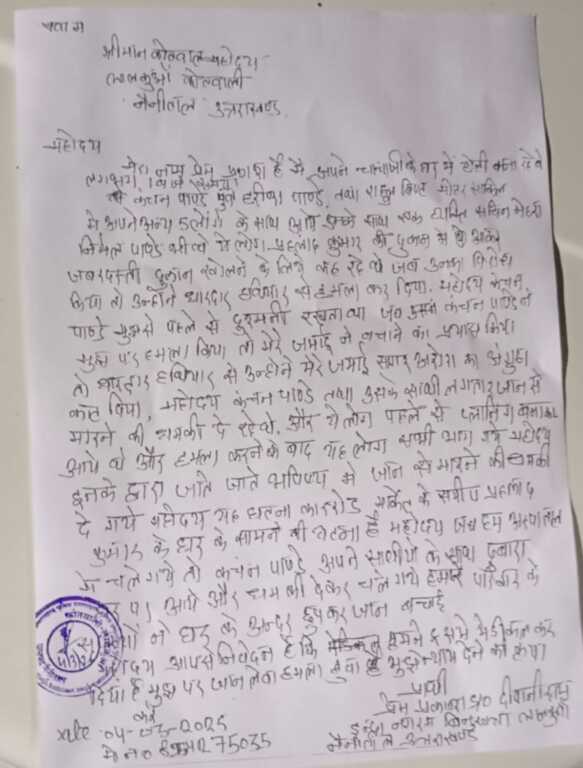 श्रीमान कोतवाल महोदय
लालकुआँ कोतवाली
नैनीताल उत्तराखण्ड
महोदय
मेरा नाम प्रेम प्रकाश है मैं अपने के घर में होली
लगभग कंचन पाण्डे पुत्र हरीश पाण्डे, तथा राहुल
में अपने अन्य 5 लोगों के साथ आये उनके साथ एक व्यक्ति सचिन
निर्मल पाण्डे भी थे ये लोग प्रहलाद कुमार की दुकान में आकर
जबरदस्ती दुकान खोलने के लिये कह रहे थे जब उनका विरोध
किया तो उन्होंने धारदार हथियार से हमला कर दिया. महोदय कंचन
पाण्डे मुझसे पहले से दुश्मनी रखता था जब कंचन पाण्डे ने
मुझ पर हमला किया तो मेरे जमाई ने बचाने का प्रयास किया
तो धारदार हथियार से उन्होंने मेरे जमाई का अंगूठा
काट दिया. महोदय कंचन पाण्डे तथा उसके साथी लगातार जान से
मारने की धमकी दे रहे थे. और ये लोग पहले से प्लानिंग बनाकर
आये थे और हमला करने के बाद यह लोग सभी भाग गये महोदय
इनके द्वारा जाते जाते भविष्य में जान से मारने की धमकी
दे गये महोदय यह घटना कार रोड के समीप प्रहलाद
कुमार के घर के सामने की घटना है महोदय जब हम अस्पताल
में चले गये तो कंचन पाण्डे अपने साथियों के साथ दुबारा
पर आये और धमकी देकर चले गये हमारे परिवार के
ने घर के अन्दर छुपकर जान बचाई
आपसे निवेदन है कि हमने मेडीकल कर
दिया है मुझ पर जान लेवा हमला हुआ है मुझे न्याय देने की कृपा
करें
प्रार्थी
प्रेम प्रकाश S/O दीवानी राम
इन्द्रा नगर बिन्दुखत्ता लालकुआँ
नैनीताल उत्तराखण्ड
2025
मो०न०